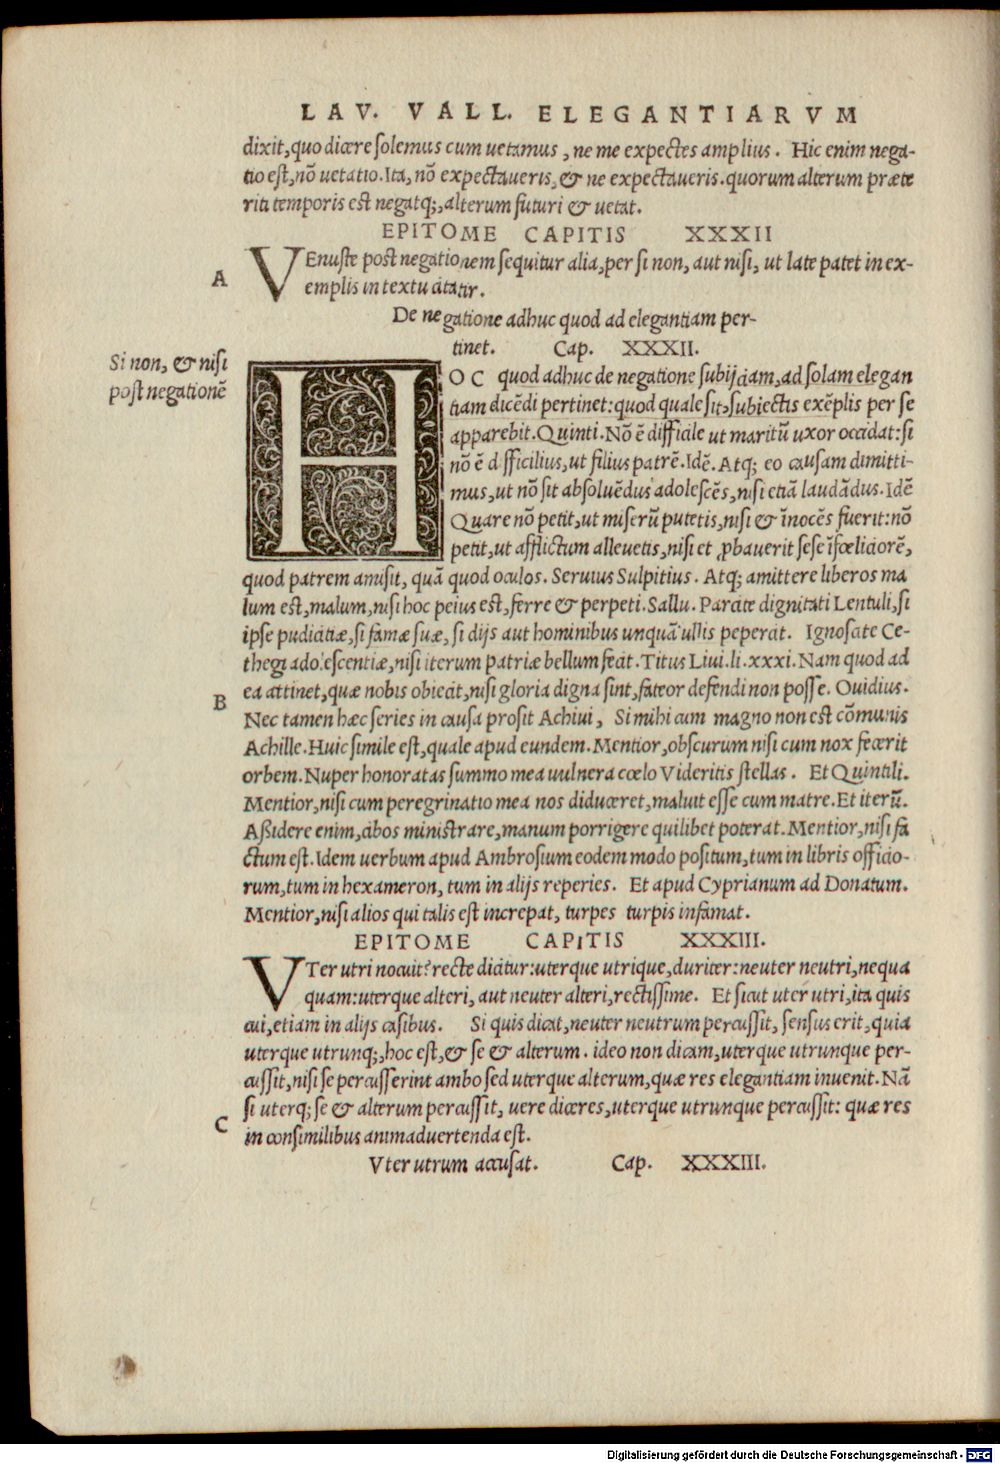 LAV. VALL. ELEGANTIARVM
dixit, quo dicere solemus cum uetamus, ne me expectes amplius. Hic enim nega-
tio est, nõ uetatio. Ita, nõ expectaueris, & ne expectaueris. quorum alterum præte
riti temporis est negatq;, alterum futuri & uetat.
EPITOME CAPITIS XXXII
A
VEnuste post negationem sequitur alia, per si non, aut nisi, ut late patet in ex-
emplis in textu citatir.
De negatione adhuc quod ad elegantiam per-
tinet. Cap. XXXII.
Si non, & nisi
post negationẽ
HOC quod adhuc de negatione subijciam, ad solam elegan
tiam dicẽdi pertinet: quod quale sit, subiectis exẽplis per se
apparebit. Quinti. Nõ ẽ difficile ut maritũ uxor occidat: si
nõ ẽ dıfficilius, ut filius patrẽ. Idẽ. Atq; eo causam dimitti-
mus, ut nõ sit absoluẽdus adolescẽs, nisi etiã laudãdus. Idẽ
Quare nõ petit, ut miserũ putetis, nisi & ĩnocẽs fuerit: nõ
petit, ut afflictum alleuetis, nisi et ꝓbauerit sese ĩfœliciorẽ,
quod patrem amisit, quã quod oculos. Seruius Sulpitius. Atq; amittere liberos ma
lum est, malum, nisi hoc peius est, ferre & perpeti. Sallu. Parcite dignitati Lentuli, si
ipse pudicitiæ, si famæ suæ, si dijs aut hominibus unquã ullis pepercit. Ignoscite Ce-
thegi adolescentiæ, nisi iterum patriæ bellum fecit. Titus Liui. li. xxxi. Nam quod ad
B
ea attinet, quæ nobis obiecit, nisi gloria digna sint, fateor defendi non posse. Ouidius.
Nec tamen hæc series in causa prosit Achiui, Si mihi cum magno non est cõmunis
Achille. Huic simile est, quale apud eundem. Mentior, obscurum nisi cum nox fecerit
orbem. Nuper honoratas summo mea uulnera cœlo Videritis stellas. Et Quintili.
Mentior, nisi cum peregrinatio mea nos diduceret, maluit esse cum matre. Et iterũ.
Aßidere enim, cibos ministrare, manum porrigere quilibet poterat. Mentior, nisi fa
ctum est. Idem uerbum apud Ambrosium eodem modo positum, tum in libris officio-
rum, tum in hexameron, tum in alijs reperies. Et apud Cyprianum ad Donatum.
Mentior, nisi alios qui talis est increpat, turpes turpis infamat.
EPITOME CAPITIS XXXIII.
VTer utri nocuit? recte dicitur: uterque utrique, duriter: neuter neutri, nequa
quam: uterque alteri, aut neuter alteri, rectissime. Et sicut uter utri, ita quis
cui, etiam in alijs casibus. Si quis dicat, neuter neutrum percussit, sensus erit, quia
uterque utrunq;, hoc est, & se & alterum. ideo non dicam, uterque utrunque per-
cussit, nisi se percusserint ambo sed uterque alterum, quæ res elegantiam inuenit. Nã
si uterq; se & alterum percussit, uere diceres, uterque utrunque percussit: quæ res
C
in consimilibus animaduertenda est.
Vter utrum accusat. Cap. XXXIII.
Digitalisierung gefördert durch die Deutsche Forschungsgemeinschaft - DFG